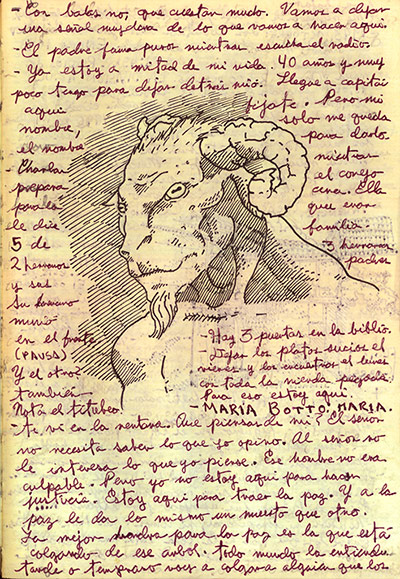 - Con balas no, que cuestan mucho. Vamos a dejar
una señal muy dura de lo que vamos a hacer aquí.
- El padre fuma puros mientras escucha el radio.
- Ya estoy a mitad de mi vida 40 años y muy
poco tengo para dejar detrás mío. Llegue a capitán
aquí fijate. Pero mi
nombre, solo me queda
el nombre para darlo
- Charlar mientras
prepara el conejo
para la cena. Ella
le dice que eran
5 de familia
2 hermanos 3 hermanas
y sus padres
Su hermano
murió
en el frente
(PAUSA)
Y el otro?
también
Nota el titubeo.
- Hay 3 puertas en la biblio.
- Dejar los platos sucios el
viernes y los encuentras el lunes
con toda la mierda pegada.
Para eso estoy aquí.
- MARIA BOTTO, MARIA.
- te vi en la ventana. Que piensas de mi? El señor
no necesita saber lo que yo opino. Al señor no
le interesa lo que yo piense. Ese hombre no era
culpable. Pero yo no estoy aquí para hacer
justicia. Estoy aquí para traer la paz. Y a la
paz le da lo mismo un muerto que otro.
La mejor para la paz es la que está
colgando de ese arbol. todo mundo la entiende
tarde o temprano vas a colgar a alguien que los